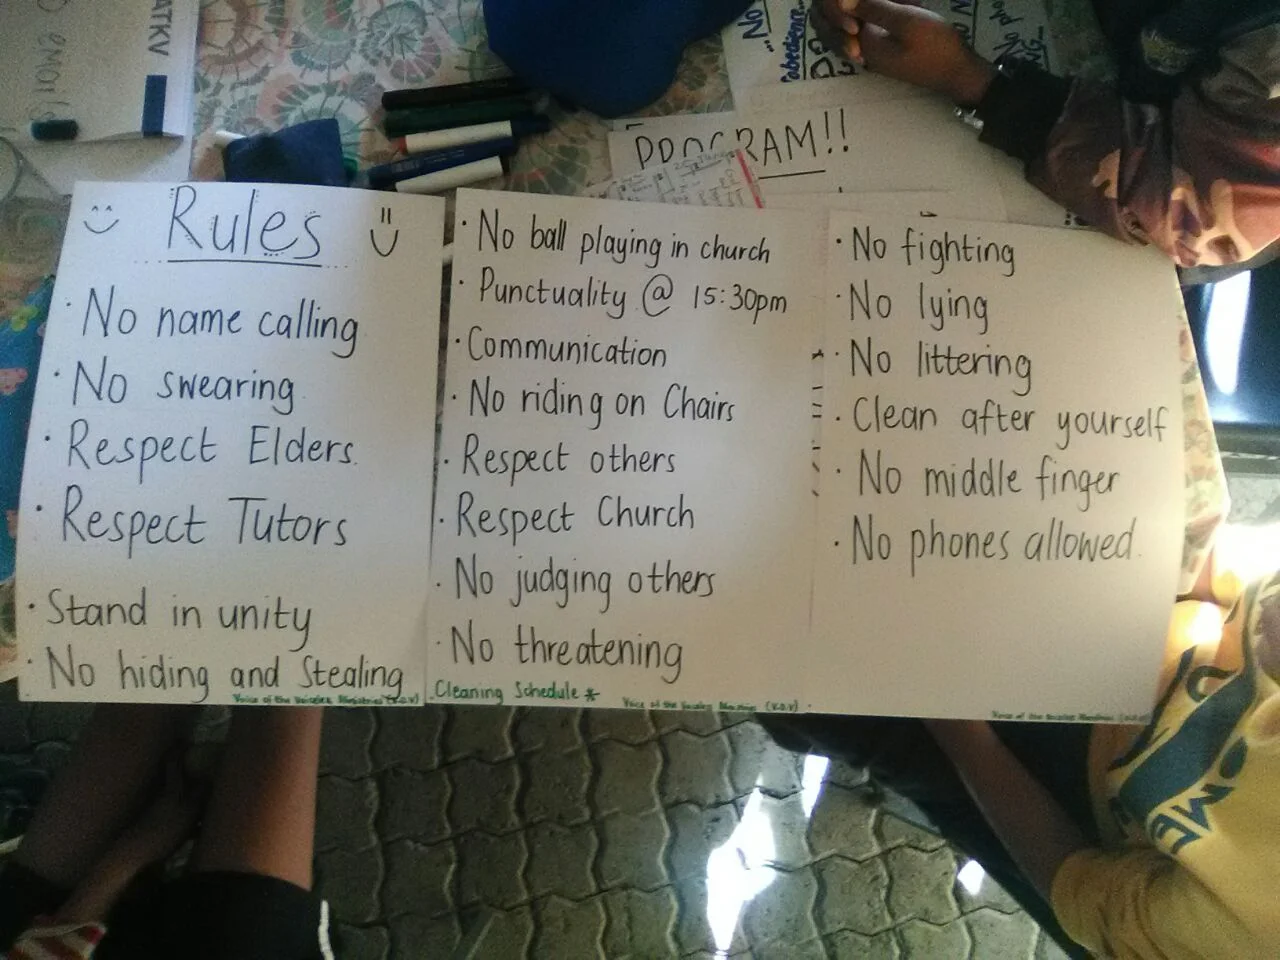 ATKV
No
obedience...
No pho
PROGRAM!!
Rules
· No name calling
· No swearing
· Respect Elders.
· Respect Tutors
· Stand in unity
· No hiding and Stealing
Voice of the Voiceless Ministries (V.O.V)
· No ball playing in church
· Punctuality @ 15:30pm
· Communication
· No riding on Chairs
· Respect others
· Respect Church
· No judging others
· No threatening
· Cleaning Schedule *
Voice of the Voiceless Ministries (V.O.V)
· No fighting
· No lying
· No littering
· Clean after yourself
· No middle finger
· No phones allowed.
Voice of the Voiceless Ministries (V.O.V)